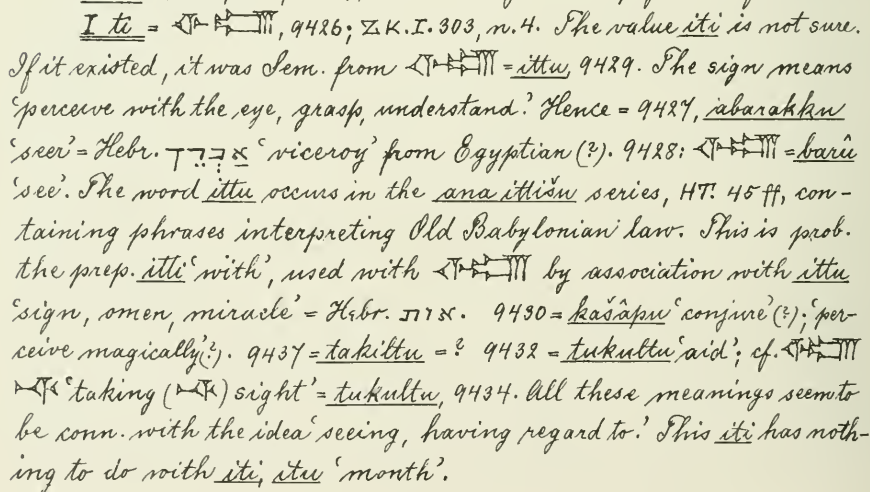 I ti = 𒅆𒁾, 9426; ZK.I.303, n.4. The value iti is not sure.
If it existed, it was Sem. from 𒅆𒁾 = ittu, 9429. The sign means
‘perceive with the eye, grasp, understand.’ Hence = 9427, abarakku
‘seer’ = Hebr. אַבְרֵךְ ‘viceroy’ from Egyptian (?). 9428: 𒅆𒁾 = barû
‘see’. The word ittu occurs in the ana ittišu series, HT. 45 ff, con-
taining phrases interpreting Old Babylonian law. This is prob.
the prep. itti ‘with’, used with 𒅆𒁾 by association with ittu
‘sign, omen, miracle’ = Hebr. אות. 9430 = kašâpu ‘conjure’ (?); ‘per-
ceive magically’(?). 9437 = takiltu = ? 9432 = tukultu ‘aid’; cf. 𒅆𒁾
𒋾 ‘taking (𒋾) sight’ = tukultu, 9434. All these meanings seem to
be conn. with the idea ‘seeing, having regard to.’ This iti has noth-
ing to do with iti, itu ‘month’.